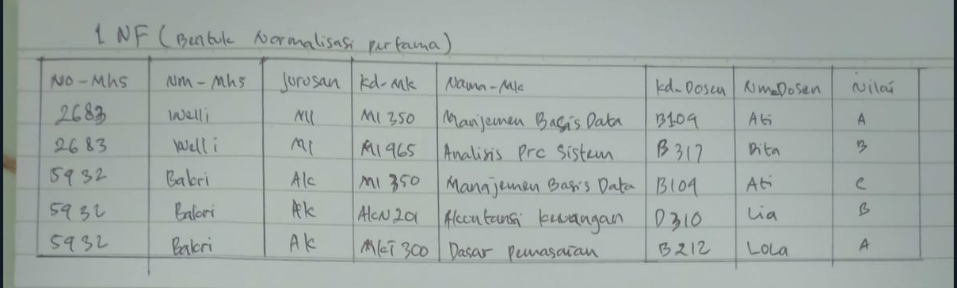 1 NF (Bentuk Normalisasi pertama)
No-Mhs Nm-Mhs Jurusan kd-Mk Nama-Mk kd-Dosen Nm-Dosen Nilai
2683 Welli MI MI 350 Manjemen Basis Data B109 Ati A
2683 Welli MI MI 965 Analisis Prc Sistem B317 Dita B
5932 Bakri Ak MI 350 Manajemen Basis Data B109 Ati C
5932 Bakri Ak AkN 201 Akuntansi keuangan D310 Lia B
5932 Bakri Ak MkT 300 Dasar Pemasaran B212 Lola A